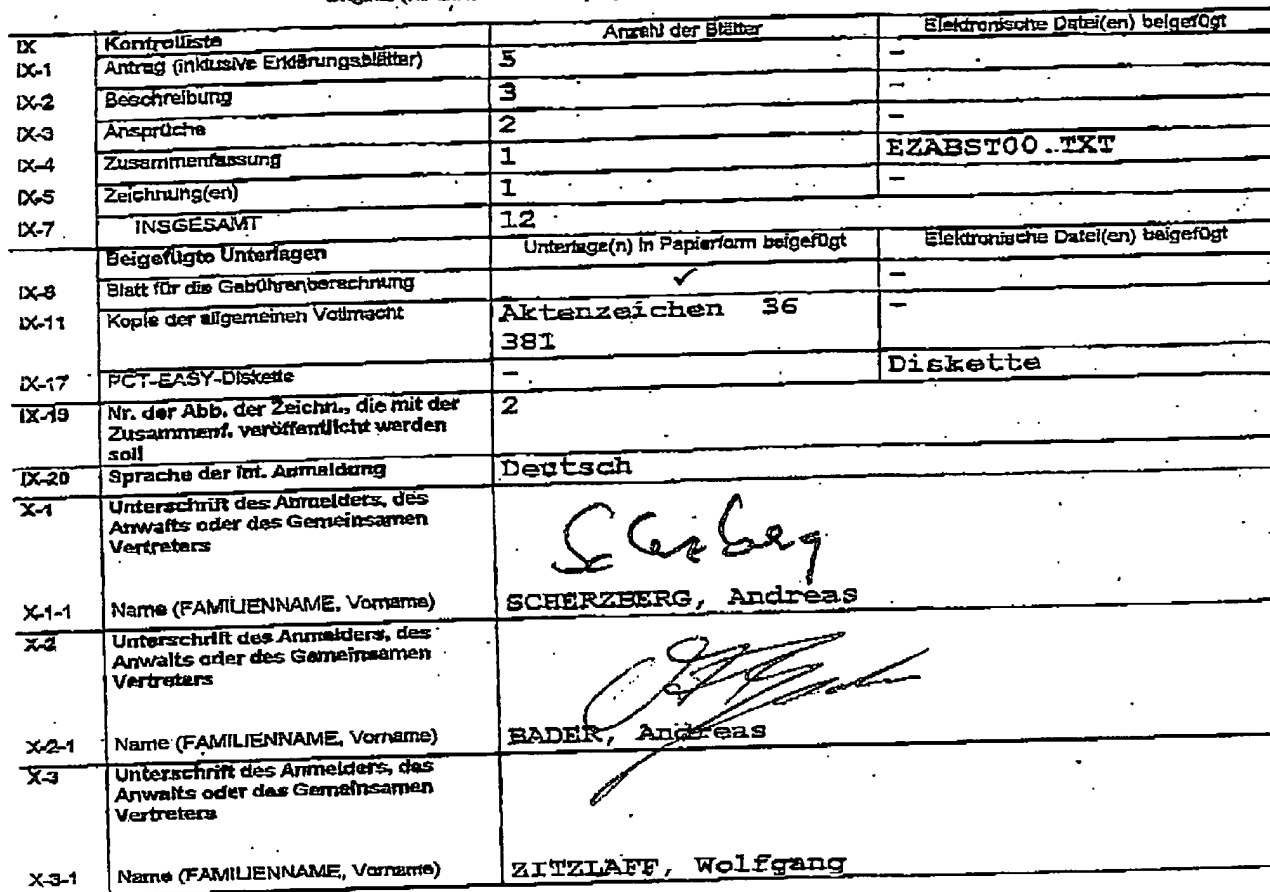 IX Kontrolliste Anzahl der Blätter Elektronische Datei(en) beigefügt
IX-1 Antrag (inklusive Erklärungsblätter) 5 -
IX-2 Beschreibung 3 -
IX-3 Ansprüche 2 -
IX-4 Zusammenfassung 1 EZABST00.TXT
IX-5 Zeichnung(en) 1 -
IX-7 INSGESAMT 12
Beigefügte Unterlagen Unterlage(n) in Papierform beigefügt Elektronische Datei(en) beigefügt
IX-8 Blatt für die Gebührenberechnung ✓ -
IX-11 Kopie der allgemeinen Vollmacht Aktenzeichen 36 -
381
IX-17 PCT-EASY-Diskette - Diskette
IX-19 Nr. der Abb. der Zeichn., die mit der 2
Zusammenf. veröffentlicht werden
soll
IX-20 Sprache der int. Anmeldung Deutsch
X-1 Unterschrift des Anmelders, des
Anwalts oder des Gemeinsamen
Vertreters
X-1-1 Name (FAMILIENNAME, Vorname) SCHERZBERG, Andreas
X-2 Unterschrift des Anmelders, des
Anwalts oder des Gemeinsamen
Vertreters
X-2-1 Name (FAMILIENNAME, Vorname) BADER, Andreas
X-3 Unterschrift des Anmelders, des
Anwalts oder des Gemeinsamen
Vertreters
X-3-1 Name (FAMILIENNAME, Vorname) ZITZLAFF, Wolfgang